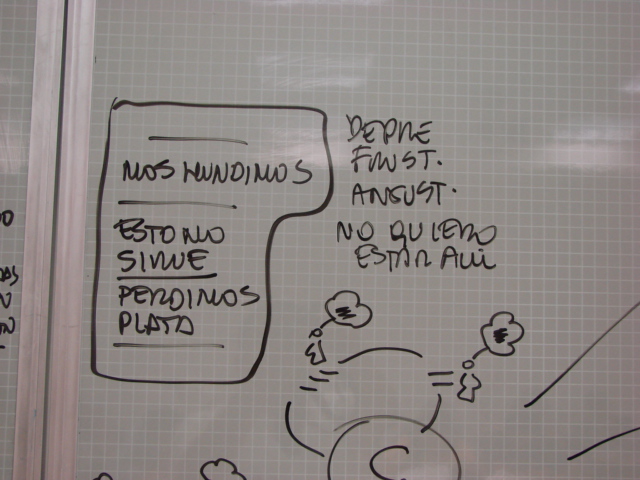 NOS HUNDIMOS
ESTO NO
SIRVE
PERDIMOS
PLATA
DEPRE
FRUST.
ANGUST.
NO QUIERO
ESTAR ALLI
C